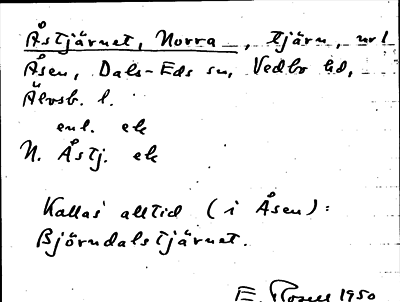 Åstjärnet, Norra, tjärn, nr 1
Åsen, Dals-Eds sn, Vedbo hd,
Älvsb. l.
enl. ek
N. Åstj. ek
Kallas alltid (i Åsen):
Björndalstjärnet.
E. Rosell 1950